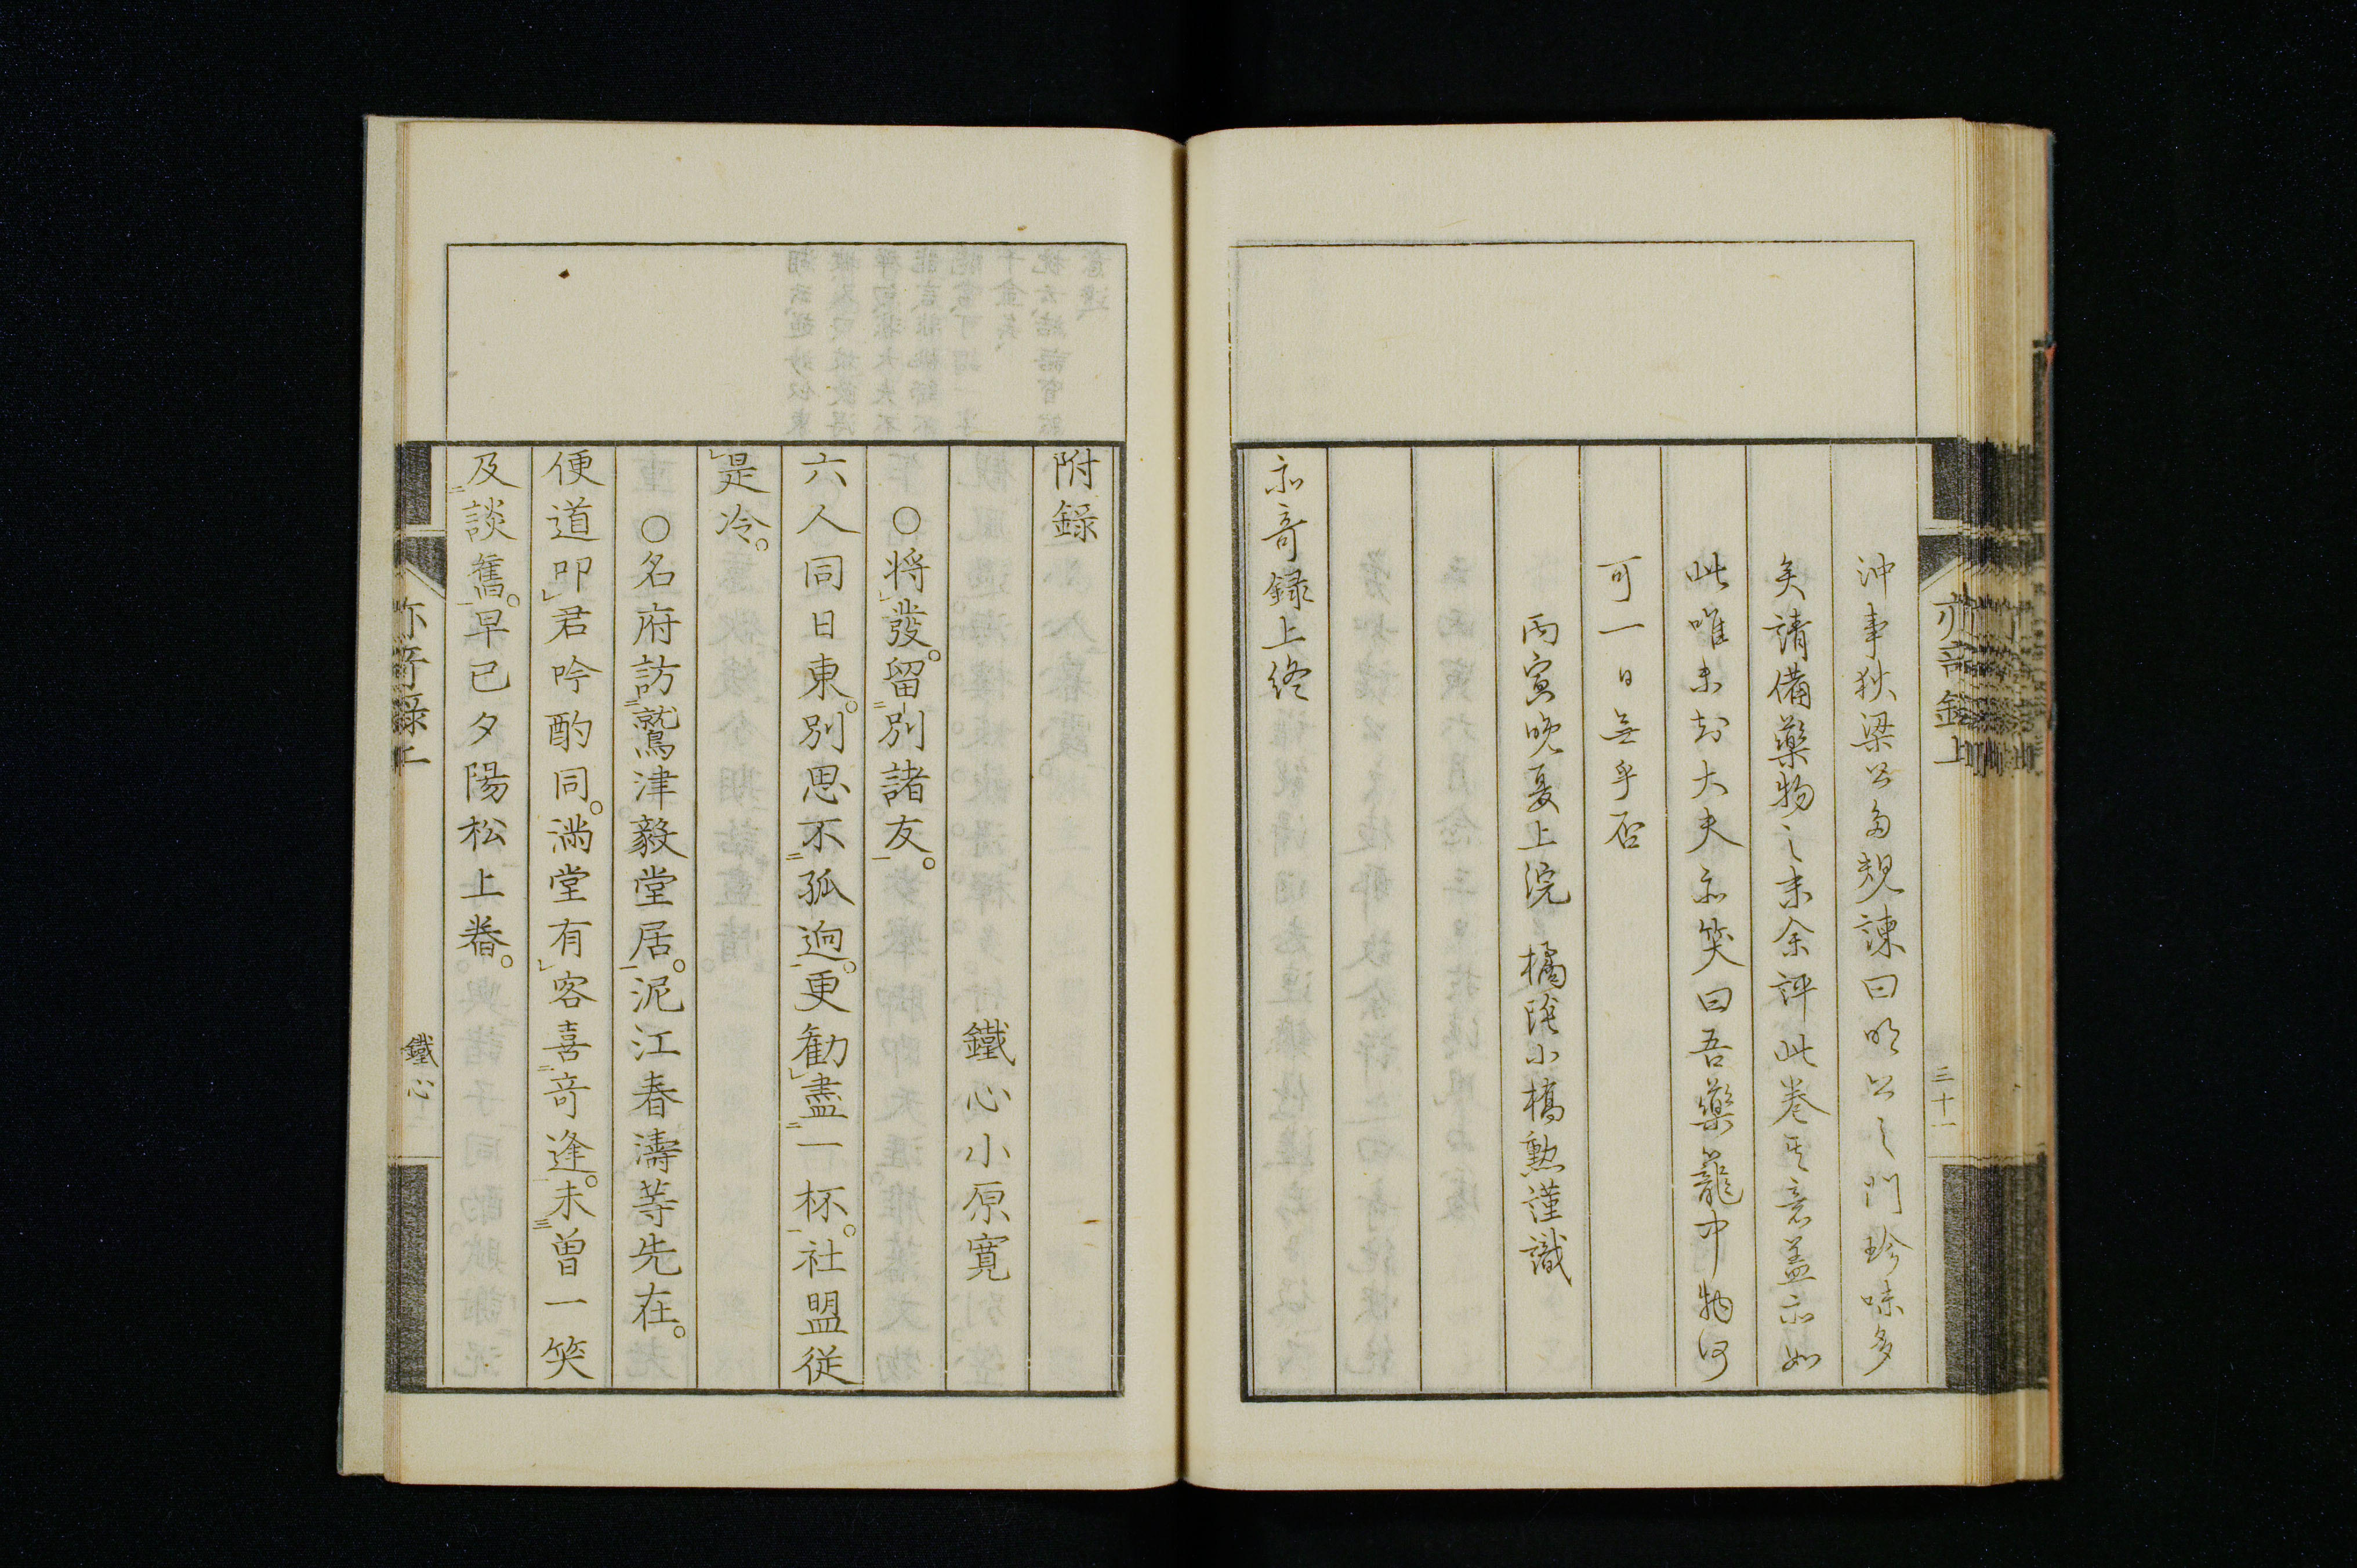 沖事狄梁公多規諫曰明公之門珍味多
矣請備藥物之末余評此卷其意盖亦如
此唯未知大夫亦笑曰吾藥籠中物何
可一日無乎否
丙寅晚夏上浣 橘陰小橋勲謹識
亦奇録上終
亦奇録上
三十一
附録
鐵心小原寛
○將發。留別諸友。
六人同日東。別思不孤逈。更勧盡一杯。社盟従
是冷。
○名府訪鷲津毅堂居。泥江春濤等先在。
便道叩君吟酌同。満堂有客喜奇逢。未曽一笑
及談舊。早已夕陽松上舂。
亦奇録上
鐵心